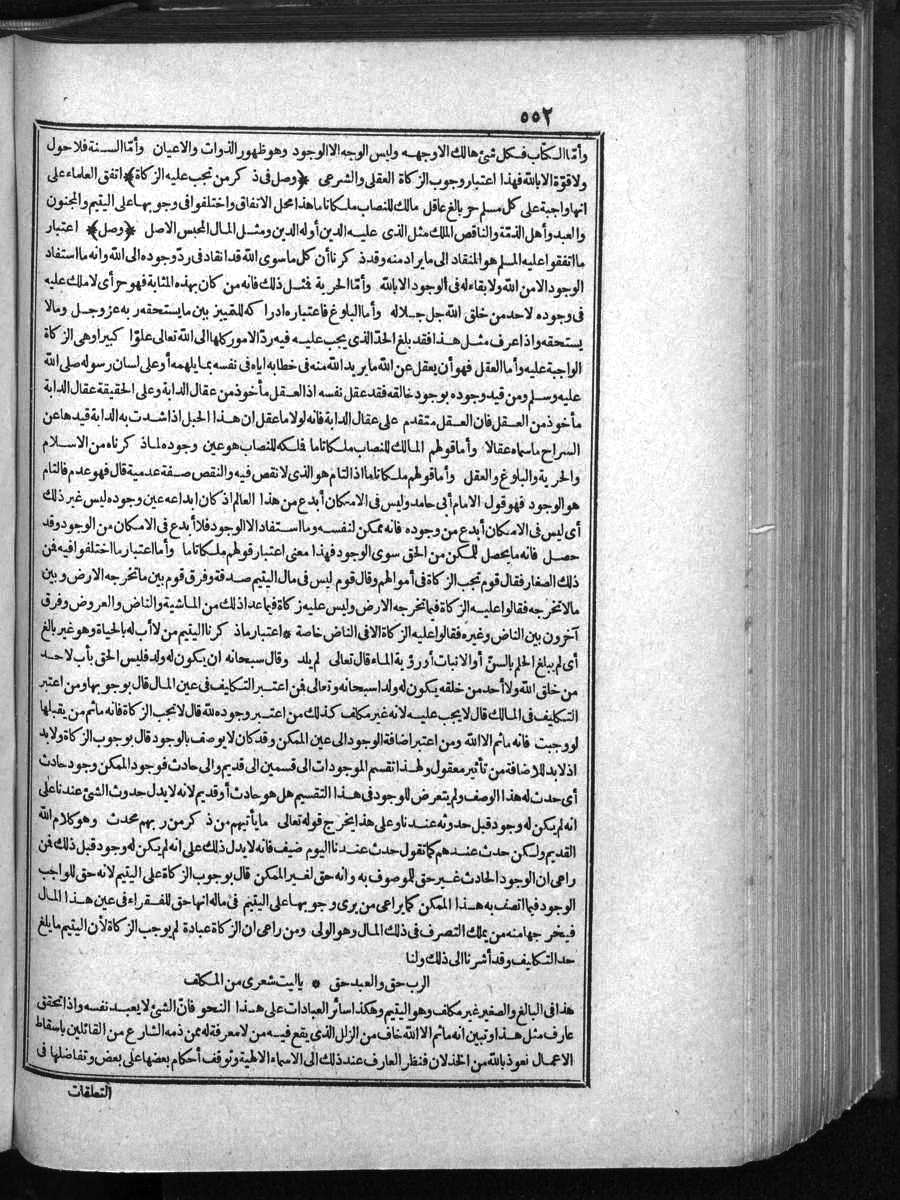 ٥٥٢
وأمّا الكتاب فكل شئ هالك الاوجهه وليس الوجه الا الوجود وهو ظهور الذوات والاعيان وأمّا السنة فلا حول
ولا قوّة الا بالله فهذا اعتبار وجوب الزكاة العقلى والشرعى ﴿وصل فى ذكر من تجب عليه الزكاة﴾ اتفق العلماء على
انها واجبة على كل مسلم حر بالغ عاقل مالك للنصاب ملكا تاما هذا محل الاتفاق واختلفوا فى وجوبها على اليتيم والمجنون
والعبد وأهل الذمّة والناقص الملك مثل الذى عليه الدين أوله الدين ومثل المال المحبس الاصل ﴿وصل﴾ اعتبار
ما اتفقوا عليه المسلم هو المنقاد الى ما يراد منه وقد ذكرنا أن كل ما سوى الله قد انقاد فى ردّ وجوده الى الله وانه ما استفاد
الوجود الا من الله ولا بقاء له فى الوجود الا بالله وأمّا الحرية فمثل ذلك فانه من كان بهذه المثابة فهو حر أى لا ملك عليه
فى وجوده لاحد من خلق الله جل جلاله وأما البلوغ فاعتباره ادراكه للتمييز بين ما يستحقه ربه عز وجل وما لا
يستحقه واذا عرف مثل هذا فقد بلغ الحدّ الذى يجب عليه فيه ردّ الامور كلها الى الله تعالى علوّا كبيرا وهى الزكاة
الواجبة عليه وأما العقل فهو أن يعقل عن الله ما يريد الله منه فى خطابه اياه فى نفسه بما يلهمه أو على لسان رسوله صلى الله
عليه وسلم ومن قيد وجوده بوجود خالقه فقد عقل نفسه اذ العقل مأخوذ من عقال الدابة وعلى الحقيقة عقال الدابة
مأخوذ من العقل فان العقل متقدم على عقال الدابة فانه لولا ما عقل ان هذا الحبل اذا شدت به الدابة قيدها عن
السراح ما سماه عقالا وأما قولهم المالك للنصاب ملكا تاما فملكه للنصاب هو عين وجوده لما ذكرناه من الاسلام
والحرية والبلوغ والعقل وأما قولهم ملكا تاما اذ التام هو الذى لا نقص فيه والنقص صفة عدمية قال فهو عدم فالتام
هو الوجود فهو قول الامام أبى حامد وليس فى الامكان أبدع من هذا العالم اذ كان ابداعه عين وجوده ليس غير ذلك
أى ليس فى الامكان أبدع من وجوده فانه ممكن لنفسه وما استفاد الا الوجود فلا أبدع فى الامكان من الوجود وقد
حصل فانه ما يحصل للممكن من الحق سوى الوجود فهذا معنى اعتبار قولهم ملكا تاما وأما اعتبار ما اختلفوا فيه فمن
ذلك الصغار فقال قوم تجب الزكاة فى أموالهم وقال قوم ليس فى مال اليتيم صدقة وفرق قوم بين ما تخرجه الارض وبين
مالا تخرجه فقالوا عليه الزكاة فيما تخرجه الارض وليس عليه زكاة فيما عدا ذلك من الماشية والناض والعروض وفرق
آخرون بين الناض وغيره فقالوا عليه الزكاة الا فى الناض خاصة * اعتبار ما ذكرنا اليتيم من لا أب له بالحياة وهو غير بالغ
أى لم يبلغ الحلم بالسنّ أو الانبات أو رؤية الماء قال تعالى لم يلد وقال سبحانه ان يكون له ولد فليس الحق بأب لاحد
من خلق الله ولا أحد من خلقه يكون له ولدا سبحانه وتعالى فمن اعتبر التكليف فى عين المال قال بوجوبها ومن اعتبر
التكليف فى المالك قال لا يجب عليه لانه غير مكلف كذلك من اعتبر وجوده لله قال لا تجب الزكاة فانه ما ثم من يقبلها
لو وجبت فانه ما ثم الا الله ومن اعتبر اضافة الوجود الى عين الممكن وقد كان لا يوصف بالوجود قال بوجوب الزكاة ولا بد
اذ لا بد للاضافة من تأثير معقول ولهذا تقسم الموجودات الى قسمين الى قديم والى حادث فوجود الممكن وجود حادث
أى حدث له هذا الوصف ولم يتعرض للوجود فى هذا التقسيم هل هو حادث أو قديم لانه لا يدل حدوث الشئ عندنا على
انه لم يكن له وجود قبل حدوثه عندنا وعلى هذا يخرج قوله تعالى ما يأتيهم من ذكر من ربهم محدث وهو كلام الله
القديم ولكن حدث عندهم كما تقول حدث عندنا اليوم ضيف فانه لا يدل ذلك على انه لم يكن له وجود قبل ذلك فمن
راعى ان الوجود الحادث غير حق للموصوف به وانه حق لغير الممكن قال بوجوب الزكاة على اليتيم لانه حق للواجب
الوجود فيما اتصف به هذا الممكن كما يراعى من يرى وجوبها على اليتيم فى ماله انها حق للفقراء فى عين هذا المال
فيخرجها منه من يملك التصرف فى ذلك المال وهو الولى ومن راعى ان الزكاة عبادة لم يوجب الزكاة لأن اليتيم ما بلغ
حد التكليف وقد أشرنا الى ذلك ولنا
الرب حق والعبد حق * يا ليت شعرى من المكلف
هذا فى البالغ والصغير غير مكلف وهو اليتيم وهكذا سائر العبادات على هذا النحو فانّ الشئ لا يعبد نفسه واذا تحقق
عارف مثل هذا وتبين انه ما ثم الا الله خاف من الزلل الذى يقع فيه من لا معرفة له ممن ذمه الشارع من القائلين باسقاط
الاعمال نعوذ بالله من الخذلان فنظر العارف عند ذلك الى الاسماء الالهية وتوقف أحكام بعضها على بعض وتفاضلها فى
التعلقات